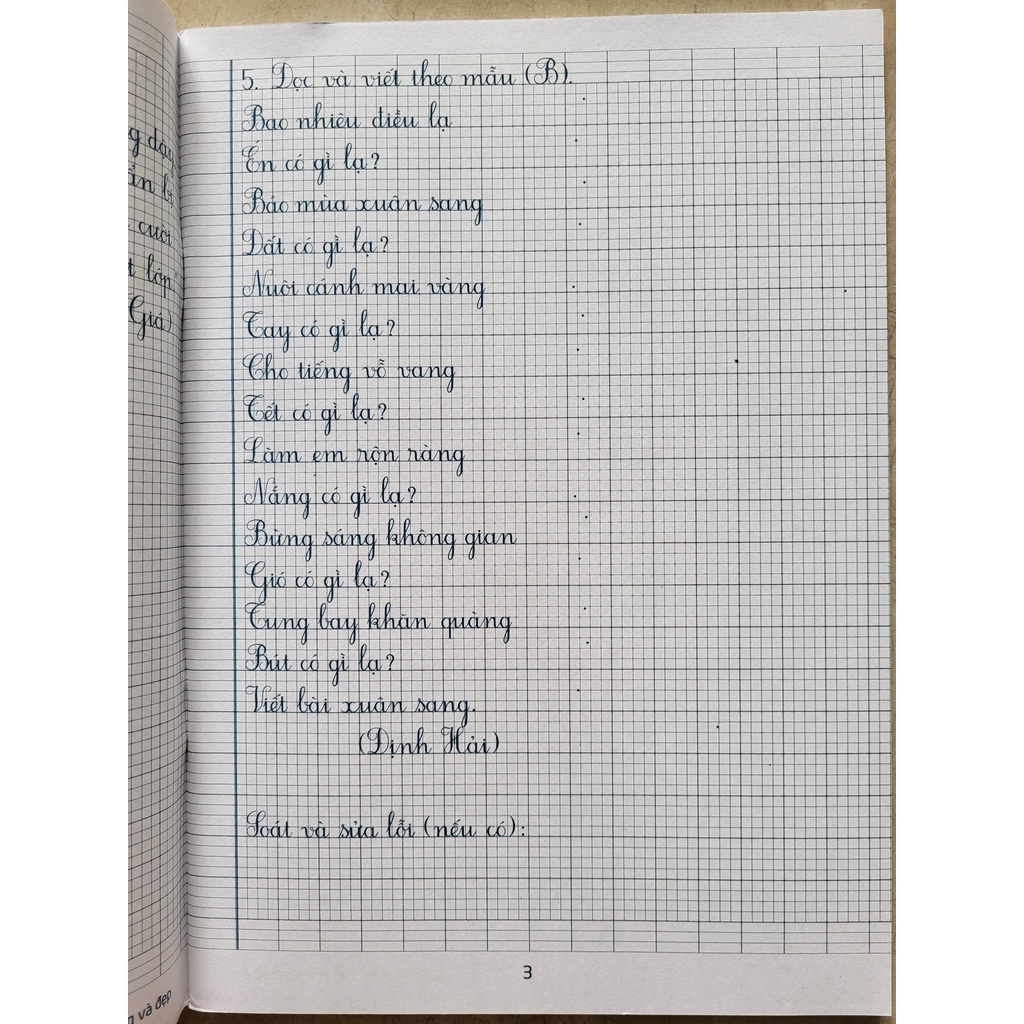 5. Đọc và viết theo mẫu (B).
Bao nhiêu điều lạ
Én có gì lạ?
Báo mùa xuân sang
Đất có gì lạ?
Nuôi cánh mai vàng
Tay có gì lạ?
Cho tiếng vỗ vang
Tết có gì lạ?
Làm em rộn ràng
Nắng có gì lạ?
Bừng sáng không gian
Gió có gì lạ?
Tung bay khăn quàng
Bút có gì lạ?
Viết bài xuân sang.
(Định Hải)
Soát và sửa lỗi (nếu có):
3
cười
lớp
Giá)
và đẹp